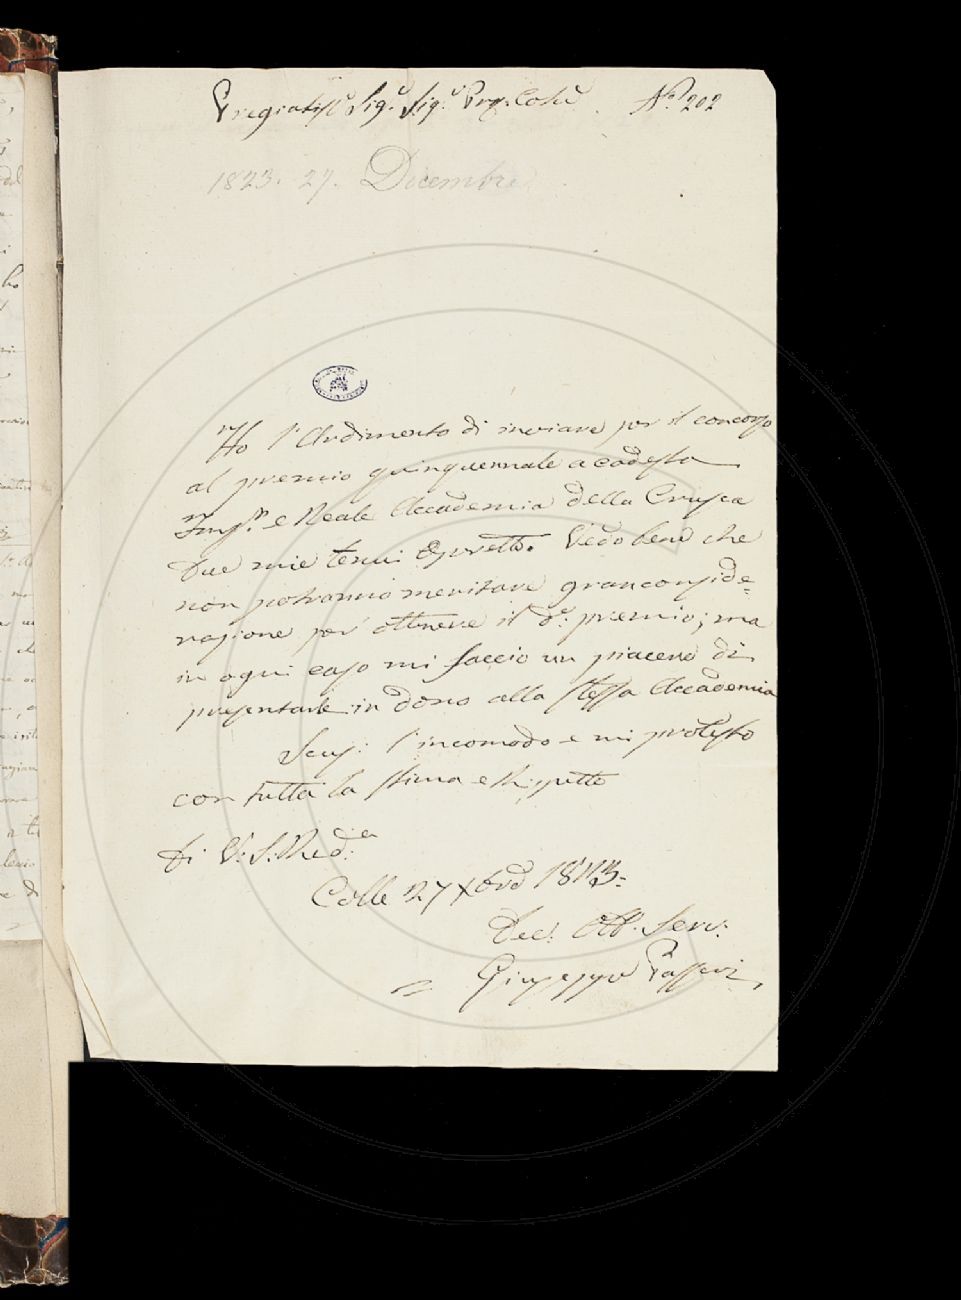 Pregiatiss.e Sig.e Sig.e Pro.e Col.e N.o 202
1823. 27. Dicembre
Ho l'Ardimento di inviare per il concorso
al premio quinquennale a codesta
Imp.e e Reale Accademia della Crusca
due mie tenui Operette. Vedo bene che
non potranno meritare gran conside=
razione per ottenere il d.o premio; ma
in ogni caso mi faccio un piacere di
presentarle in dono alla stessa Accademia
Scusi l'incomodo e mi protesto
con tutta la stima e rispetto
Di V. S. Red.a
Colle 27 Xbre 1823:
Dev. Obb. Serv.
Giuseppe Passeri